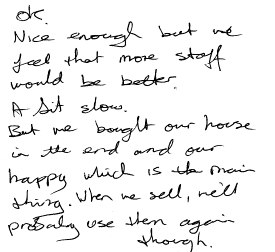 OK.
Nice enough but we
feel that more staff
would be better.
A bit slow.
But we bought our house
in the end and our
happy which is the main
thing. When we sell, we'll
probably use them again
though.